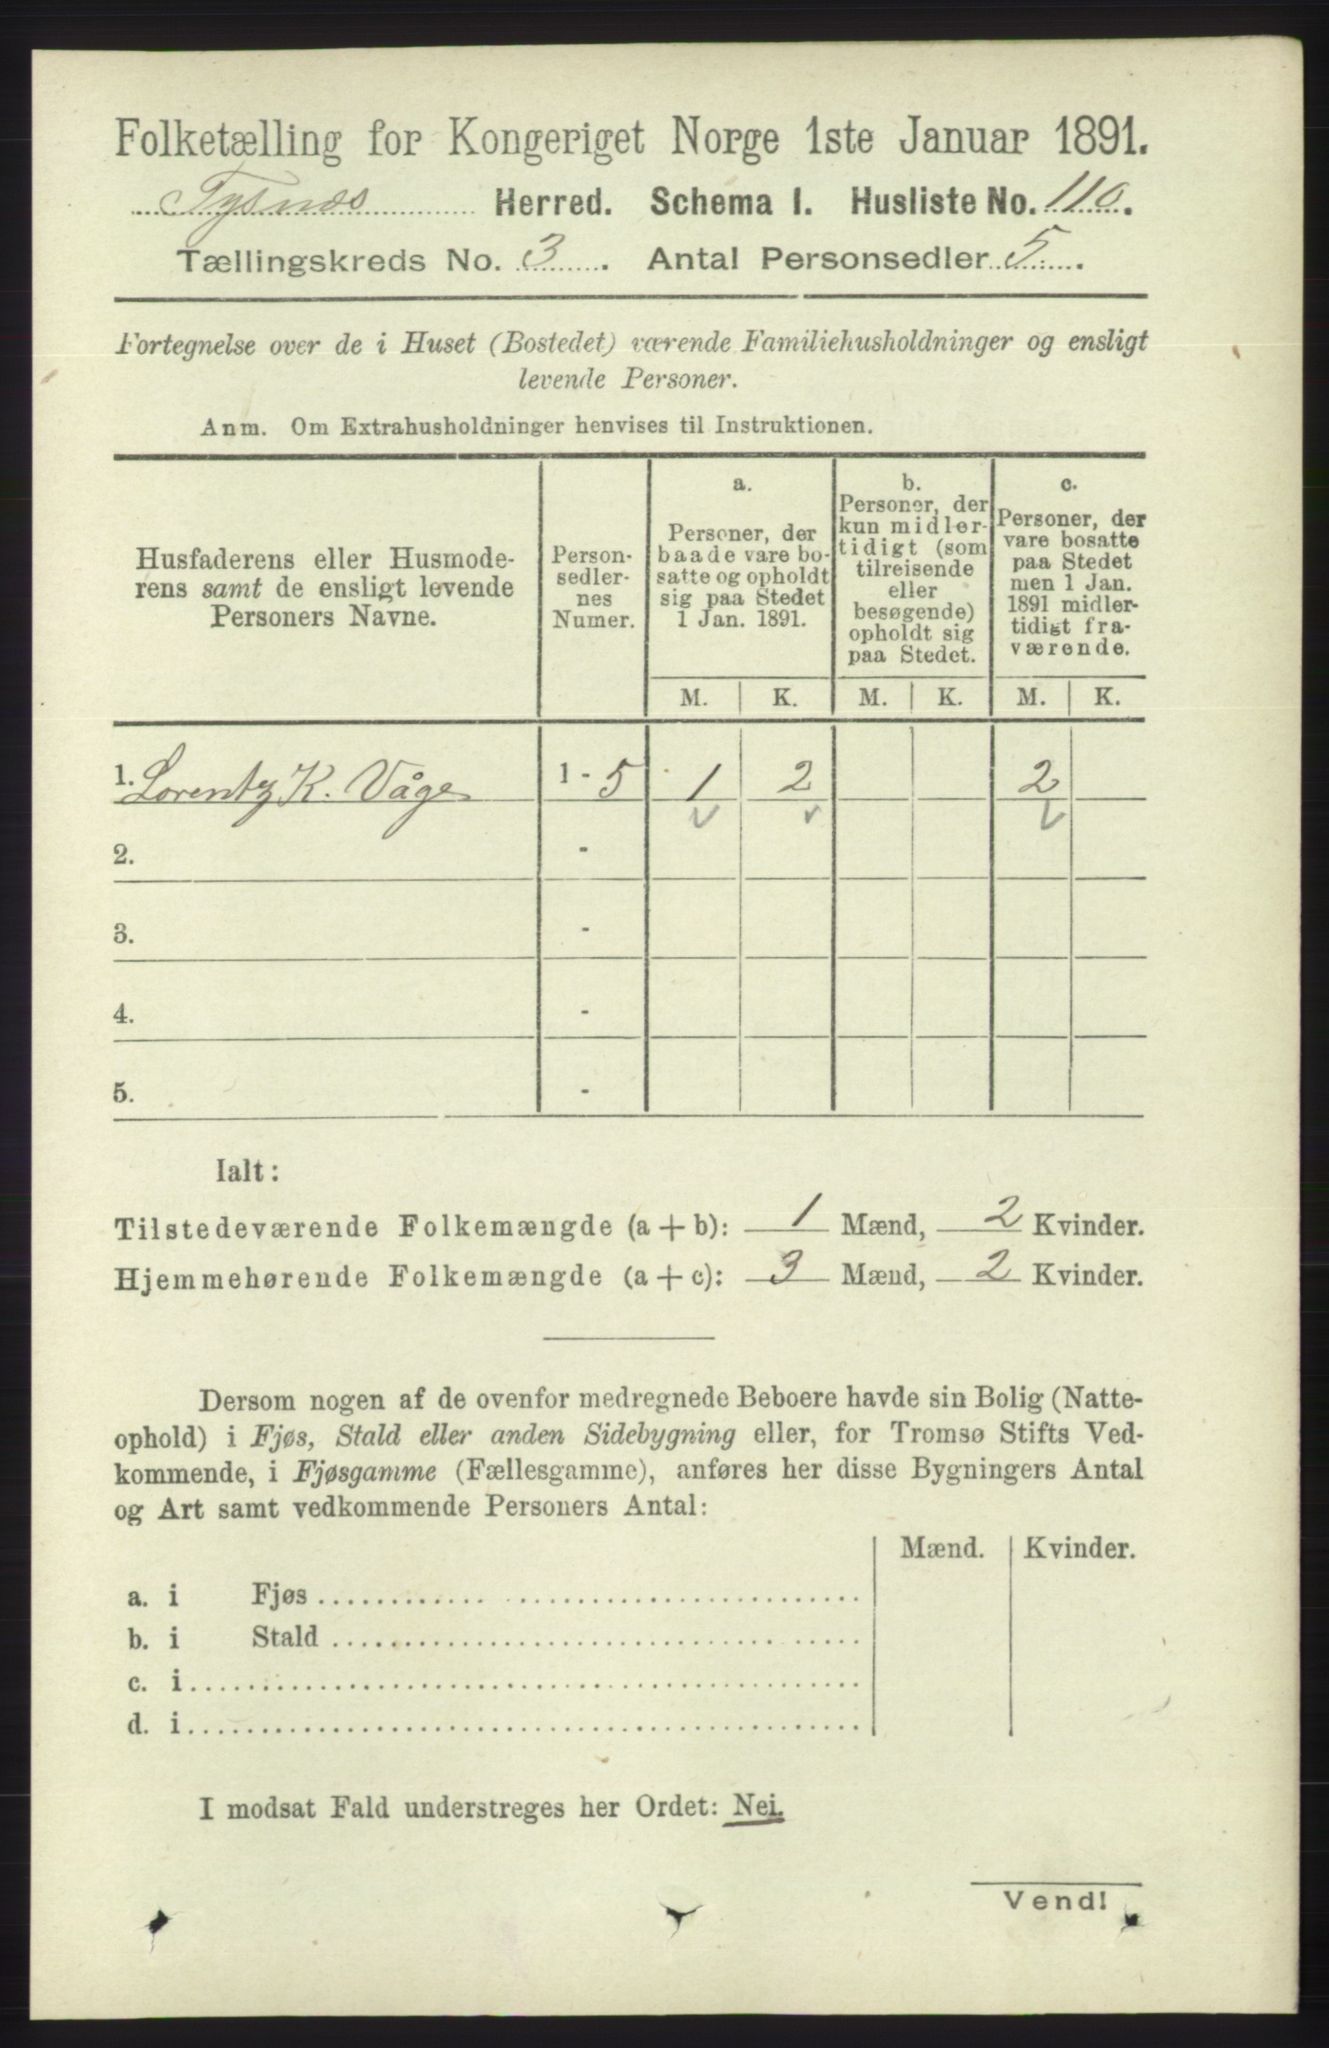 Folketælling for Kongeriget Norge 1ste Januar 1891.
Tysnæs Herred. Schema I. Husliste No. 110.
Tællingskreds No. 3. Antal Personsedler 5.
Fortegnelse over de i Huset (Bostedet) værende Familiehusholdninger og ensligt
levende Personer.
Anm. Om Extrahusholdninger henvises til Instruktionen.
Husfaderens eller Husmode-
rens samt de ensligt levende
Personers Navne.
Person-
sedler-
nes
Numer.
a.
Personer, der
baade vare bo-
satte og opholdt
sig paa Stedet
1 Jan. 1891.
b.
Personer, der
kun midler-
tidigt (som
tilreisende
eller
besøgende)
opholdt sig
paa Stedet.
c.
Personer, der
vare bosatte
paa Stedet
men 1 Jan.
1891 midler-
tidigt fra-
værende.
M. K. M. K. M. K.
1. Lorentz K. Våge 1 - 5 1 2 2
2. -
3. -
4. -
5. -
Ialt:
Tilstedeværende Folkemængde (a + b): 1 Mænd, 2 Kvinder.
Hjemmehørende Folkemængde (a + c): 3 Mænd, 2 Kvinder.
Dersom nogen af de ovenfor medregnede Beboere havde sin Bolig (Natte-
ophold) i Fjøs, Stald eller anden Sidebygning eller, for Tromsø Stifts Ved-
kommende, i Fjøsgamme (Fællesgamme), anføres her disse Bygningers Antal
og Art samt vedkommende Personers Antal:
Mænd. Kvinder.
a. i Fjøs
b. i Stald
c. i
d. i
I modsat Fald understreges her Ordet: Nei.
Vend!